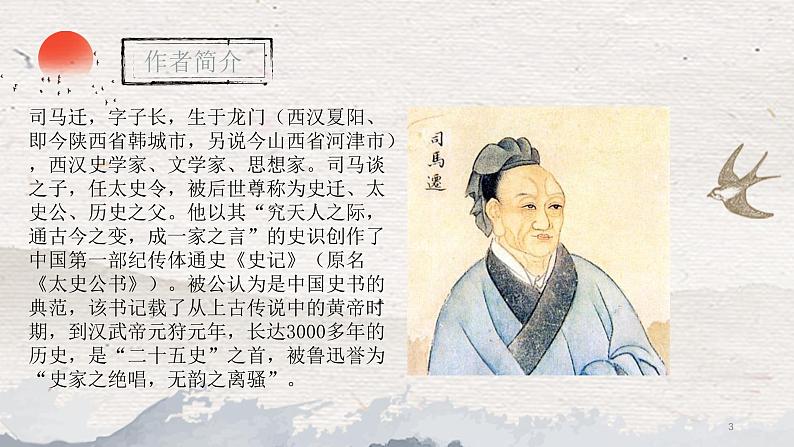 作者简介
司马迁，字子长，生于龙门（西汉夏阳、
即今陕西省韩城市，另说今山西省河津市）
，西汉史学家、文学家、思想家。司马谈
之子，任太史令，被后世尊称为史迁、太
史公、历史之父。他以其“究天人之际，
通古今之变，成一家之言”的史识创作了
中国第一部纪传体通史《史记》（原名
《太史公书》）。被公认为是中国史书的
典范，该书记载了从上古传说中的黄帝时
期，到汉武帝元狩元年，长达3000多年的
历史，是“二十五史”之首，被鲁迅誉为
“史家之绝唱，无韵之离骚”。
司馬遷
3